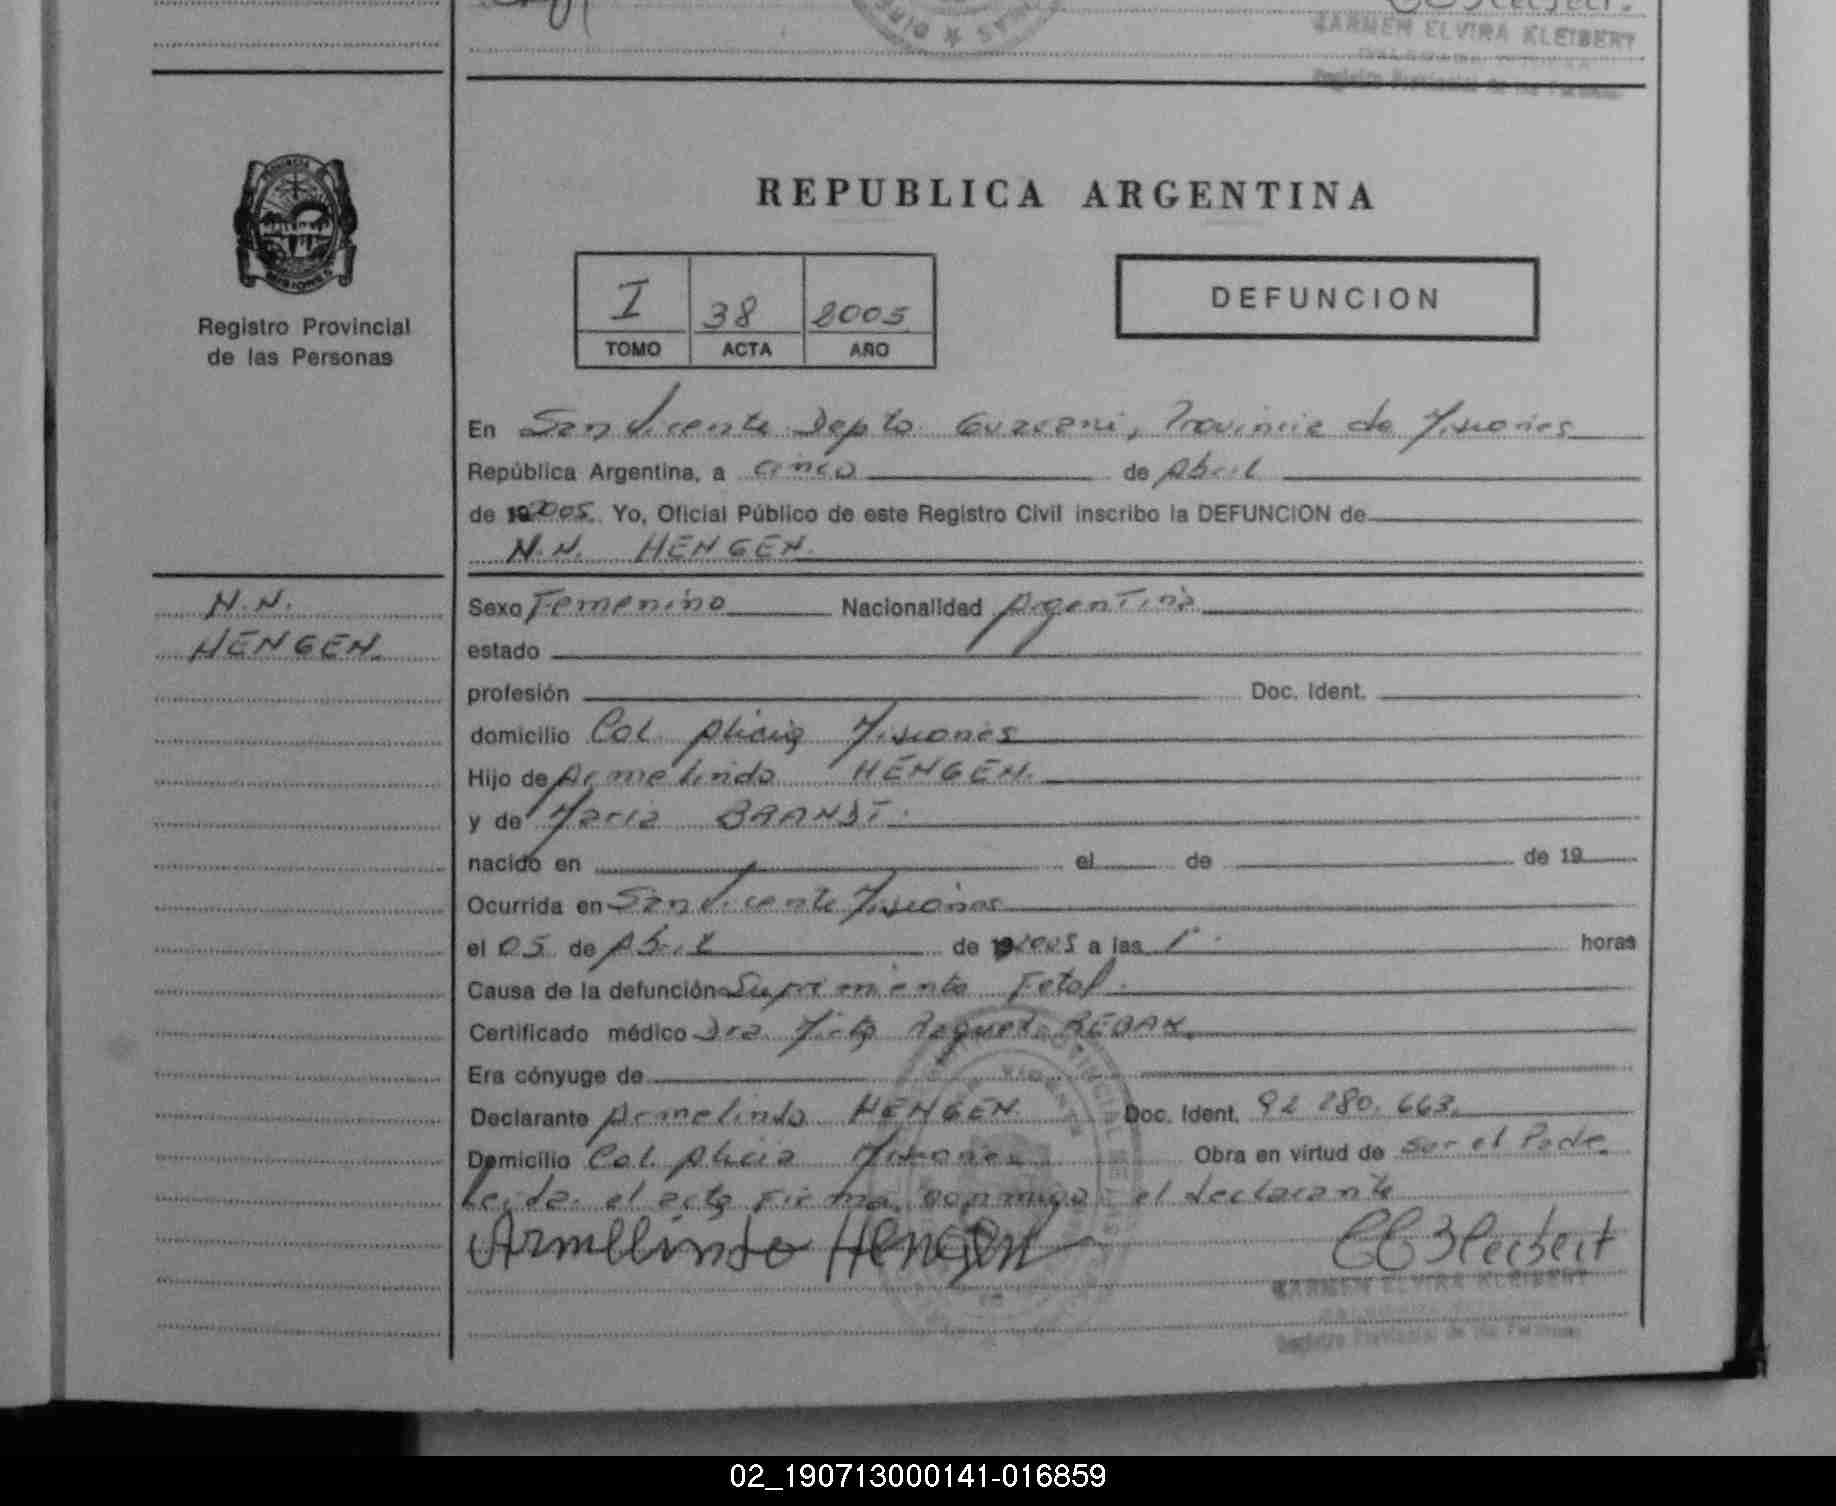 CARMEN ELVIRA KLEIBERT
Registro Provincial de las Personas
PROVINCIA DE
MISIONES
Registro Provincial
de las Personas
REPUBLICA ARGENTINA
I 38 2005
TOMO ACTA AÑO
DEFUNCION
En San Vicente Depto Guarani, Provincia de Misiones
República Argentina, a cinco de Abril
de 192005. Yo, Oficial Público de este Registro Civil inscribo la DEFUNCION de
N.N. HENGEN.
N.N.
HENGEN.
Sexo Femenino Nacionalidad Argentina
estado
profesión Doc. Ident.
domicilio Col. Alicia Misiones
Hijo de Armelindo HENGEN.
y de Maria BRANDT.
nacido en el de de 19
Ocurrida en San Vicente Misiones
el 05 de Abril de 192005 a las 1. horas
Causa de la defunción Sufrimiento Fetal.
Certificado médico Dra. Mirta
Era cónyuge de
Declarante Armelindo HENGEN. Doc. Ident. 92 280.663.
Domicilio Col. Alicia Misiones Obra en virtud de ser el Padre.
Leida el acta firma conmigo el declarante
Armellindo Hengen CEKleibert
CARMEN ELVIRA KLEIBERT
Registro Provincial de las Personas
02_190713000141-016859